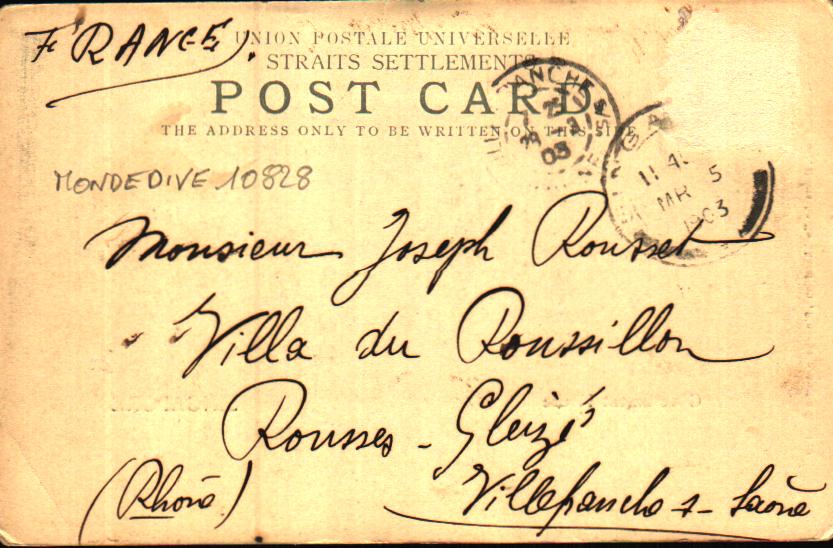 FRANCE.
UNION POSTALE UNIVERSELLE
STRAITS SETTLEMENTS
POST CARD.
THE ADDRESS ONLY TO BE WRITTEN ON THIS SIDE
MONDEDIVE 10828
03
MR 5
1903
Monsieur Joseph Rousset
Villa du Roussillon
Rousses - Gleizé
(Rhône)
Villefranche s- Saône